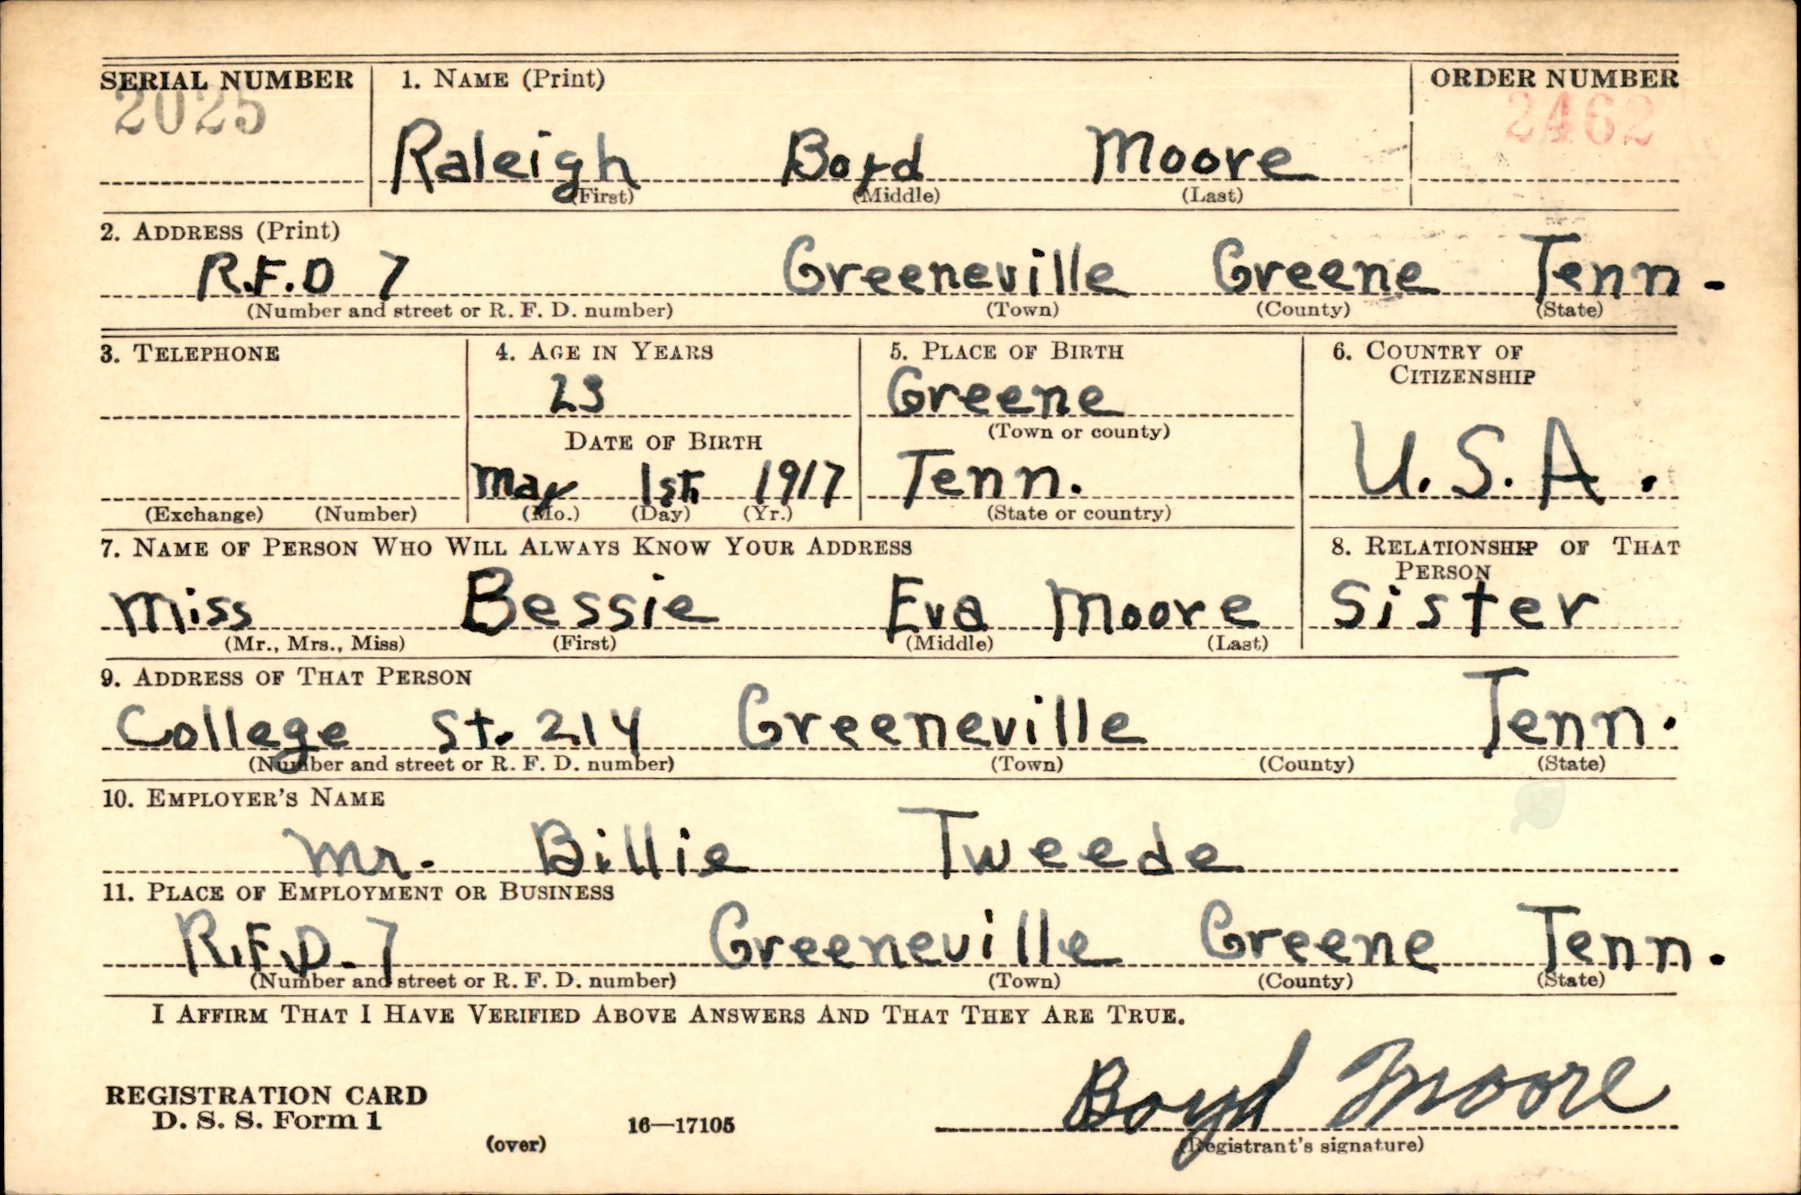 SERIAL NUMBER 1. NAME (Print) ORDER NUMBER
2025 2462
Raleigh Boyd Moore
(First) (Middle) (Last)
2. ADDRESS (Print)
R.F.D 7 Greeneville Greene Tenn.
(Number and street or R. F. D. number) (Town) (County) (State)
3. TELEPHONE 4. AGE IN YEARS 5. PLACE OF BIRTH 6. COUNTRY OF
CITIZENSHIP
23 Greene
(Town or county)
DATE OF BIRTH
May 1st 1917 Tenn. U.S.A.
(Exchange) (Number) (Mo.) (Day) (Yr.) (State or country)
7. NAME OF PERSON WHO WILL ALWAYS KNOW YOUR ADDRESS 8. RELATIONSHIP OF THAT
PERSON
Miss Bessie Eva Moore Sister
(Mr., Mrs., Miss) (First) (Middle) (Last)
9. ADDRESS OF THAT PERSON
College St. 214 Greeneville Tenn.
(Number and street or R. F. D. number) (Town) (County) (State)
10. EMPLOYER'S NAME
Mr. Billie Tweede
11. PLACE OF EMPLOYMENT OR BUSINESS
R.F.D. 7 Greeneville Greene Tenn.
(Number and street or R. F. D. number) (Town) (County) (State)
I AFFIRM THAT I HAVE VERIFIED ABOVE ANSWERS AND THAT THEY ARE TRUE.
Boyd Moore
REGISTRATION CARD
D. S. S. Form 1 16—17105
(over) (Registrant's signature)